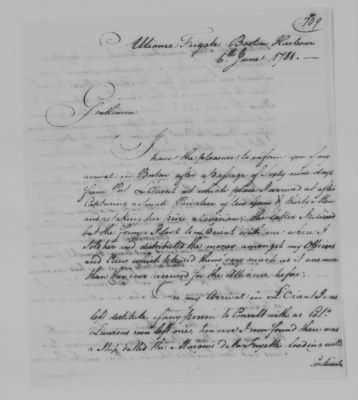 709
Alliance Frigate Boston Harbour
6th June 1781.
Gentlemen
I have the pleasure to inform you of my
arrival in Boston after a Passage of Sixty nine days
from Port L'Orient at which place I arrived after
Capturing a small Privateer of Guns & thirty Men
and retaking her prize a the latter I
but the former I took to L'Orient with me where I
Sold her and distributed the money amongst my Officers
and Crew which pleased them very much as it was more
than they ever received for the Alliance before.
On my Arrival in L'Orient I was
left destitute of any Person to Consult with as Colo.
Laurens soon left me, however I soon found there was
a Ship called the Marquis de la Fayette loading with
continental